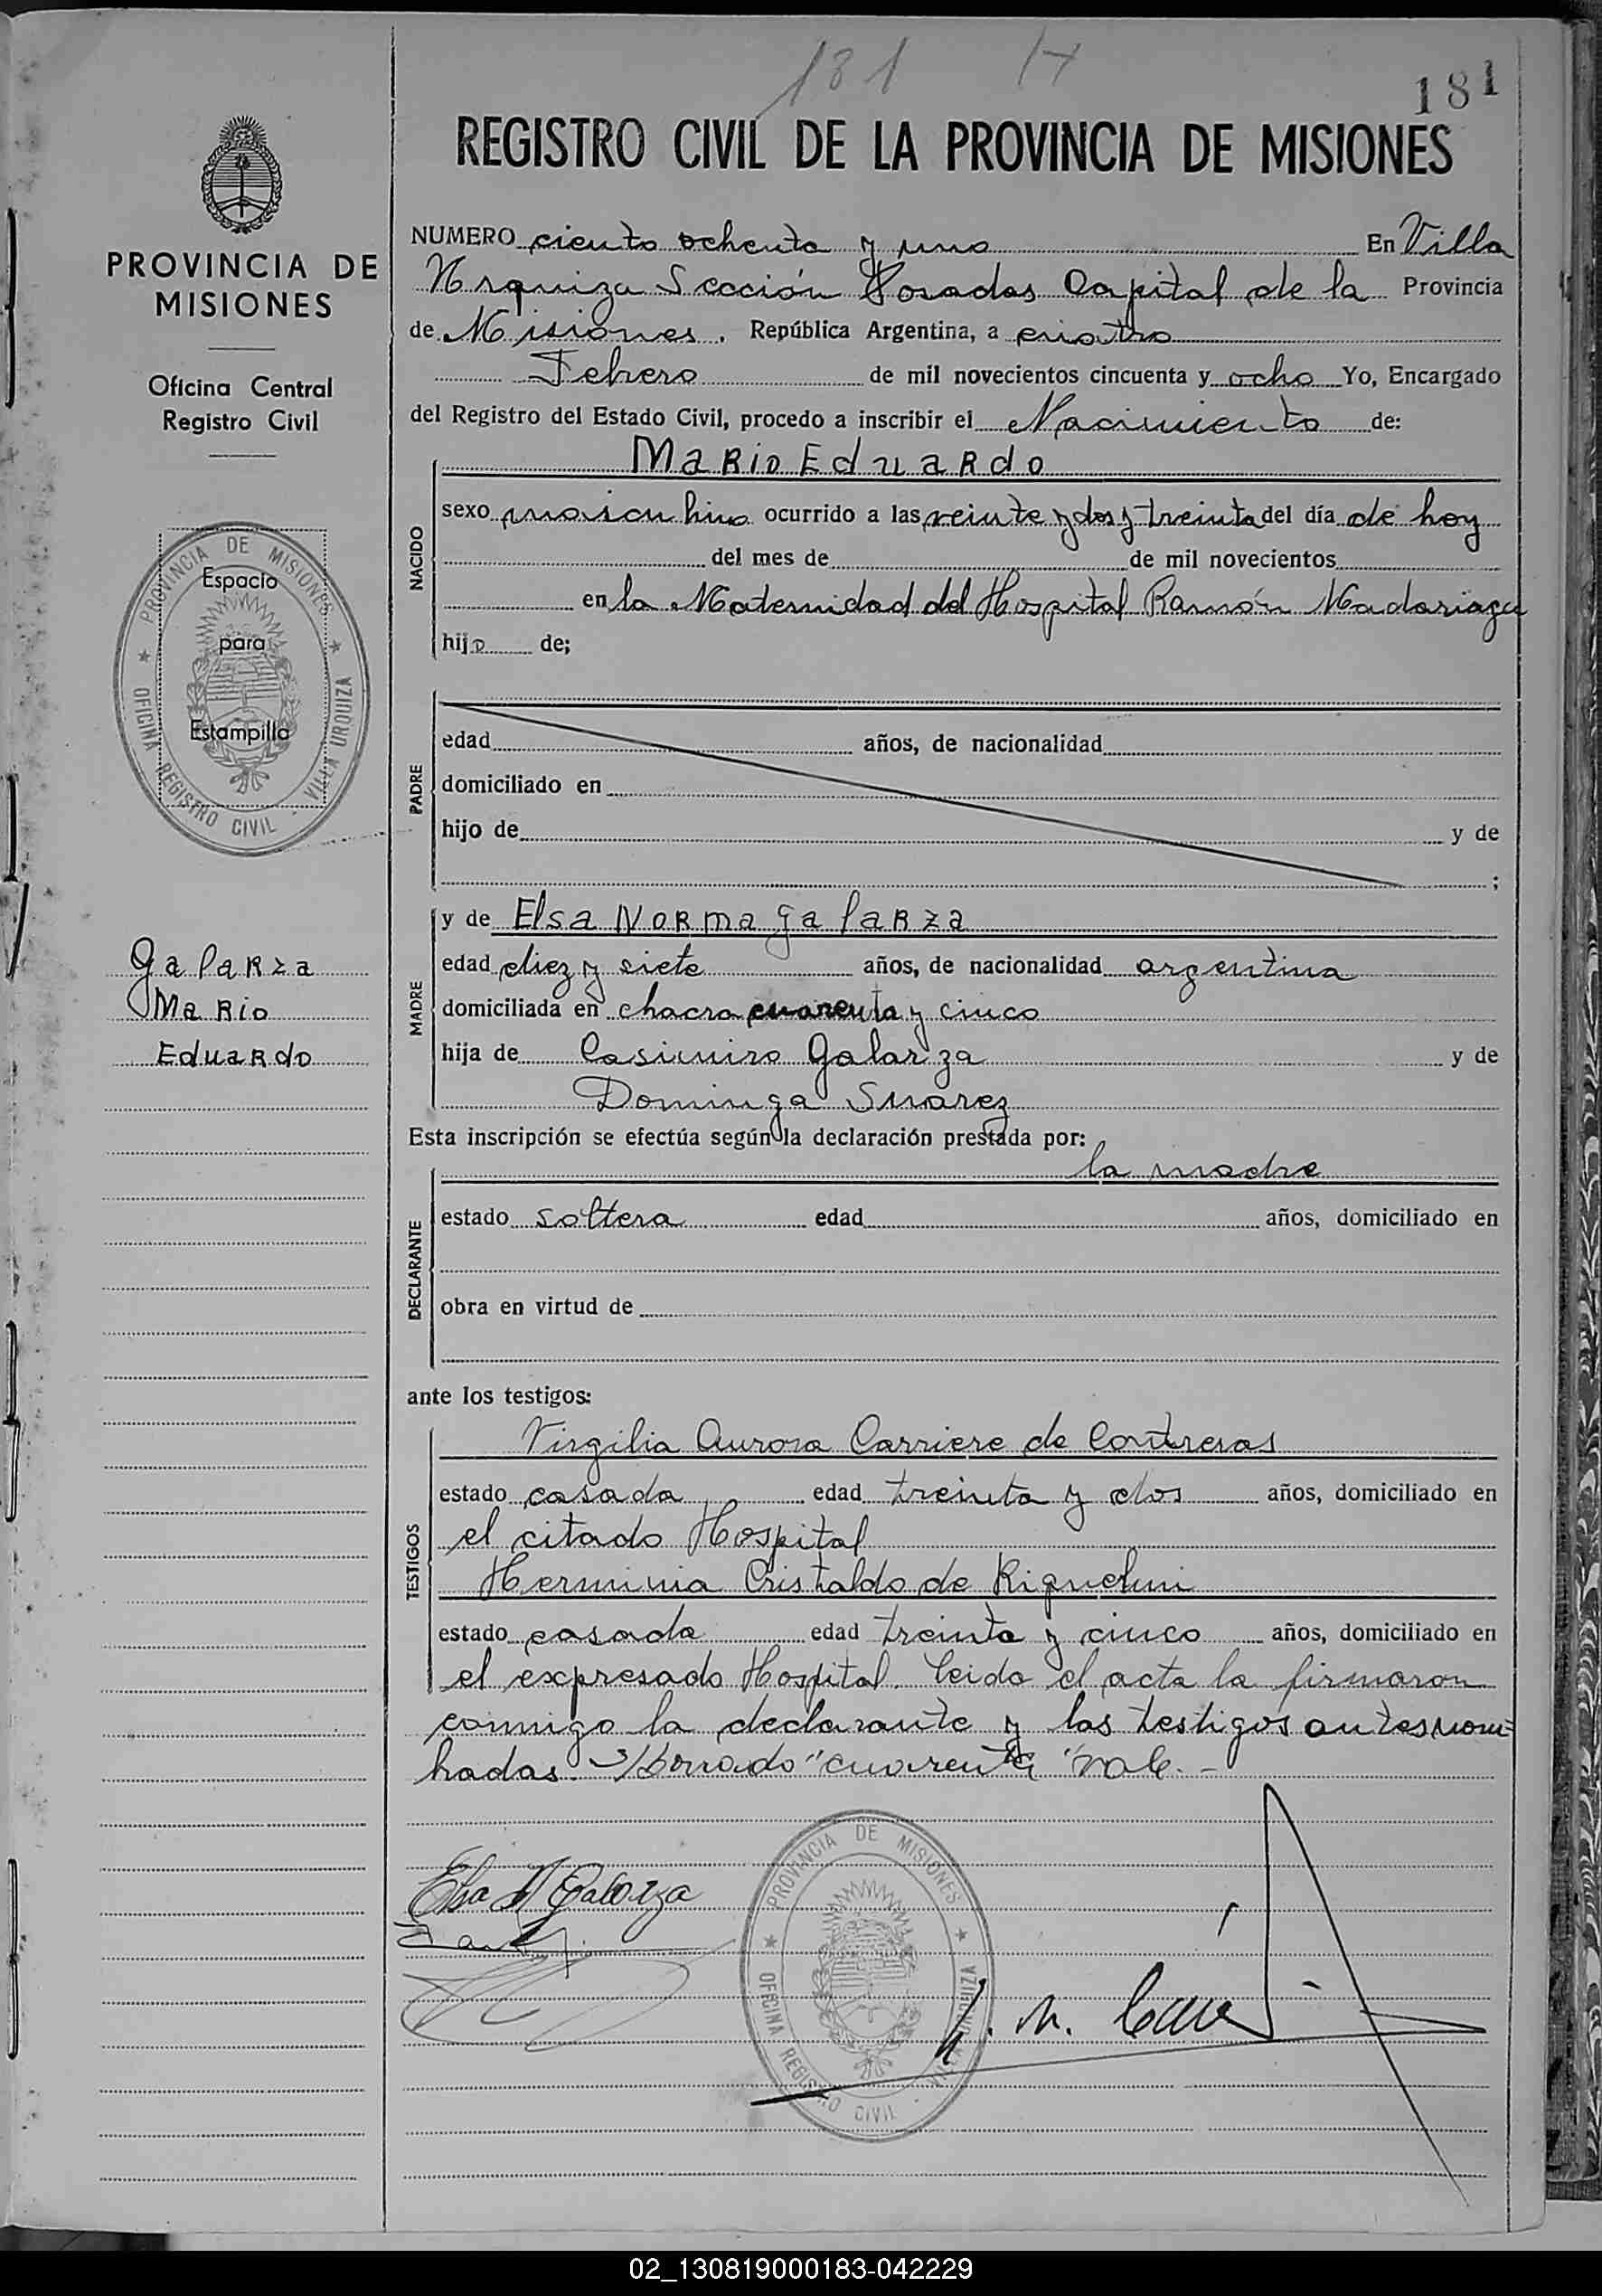 181 H
181
REGISTRO CIVIL DE LA PROVINCIA DE MISIONES
PROVINCIA DE
MISIONES
Oficina Central
Registro Civil
PROVINCIA DE MISIONES
OFICINA REGISTRO CIVIL - VILLA URQUIZA
Espacio
para
Estampilla
Galarza
Mario
Eduardo
NUMERO ciento ochenta y uno En Villa
Urquiza Sección Posadas Capital de la Provincia
de Misiones. República Argentina, a cuatro
Febrero de mil novecientos cincuenta y ocho Yo, Encargado
del Registro del Estado Civil, procedo a inscribir el Nacimiento de:
NACIDO
Mario Eduardo
sexo masculino ocurrido a las veinte y dos y treinta del día de hoy
del mes de de mil novecientos
en la Maternidad del Hospital Ramón Madariaga
hijo de;
PADRE
edad años, de nacionalidad
domiciliado en
hijo de y de
;
MADRE
y de Elsa Norma Galarza
edad diez y siete años, de nacionalidad argentina
domiciliada en chacra cuarenta y cinco
hija de Casimiro Galarza y de
Dominga Suarez
Esta inscripción se efectúa según la declaración prestada por:
DECLARANTE
la madre
estado soltera edad años, domiciliado en
obra en virtud de
ante los testigos:
TESTIGOS
Virgilia Aurora Carriere de Contreras
estado casada edad treinta y dos años, domiciliado en
el citado Hospital
Herminia Cristaldo de Riquelmi
estado casada edad treinta y cinco años, domiciliado en
el expresado Hospital. Leido el acta la firmaron
conmigo la declarante y las testigos antesnom=
bradas. S/borrado "cuarenta" vale. -
Elsa N Galarza
PROVINCIA DE MISIONES
OFICINA REGISTRO CIVIL - VILLA URQUIZA
02_130819000183-042229